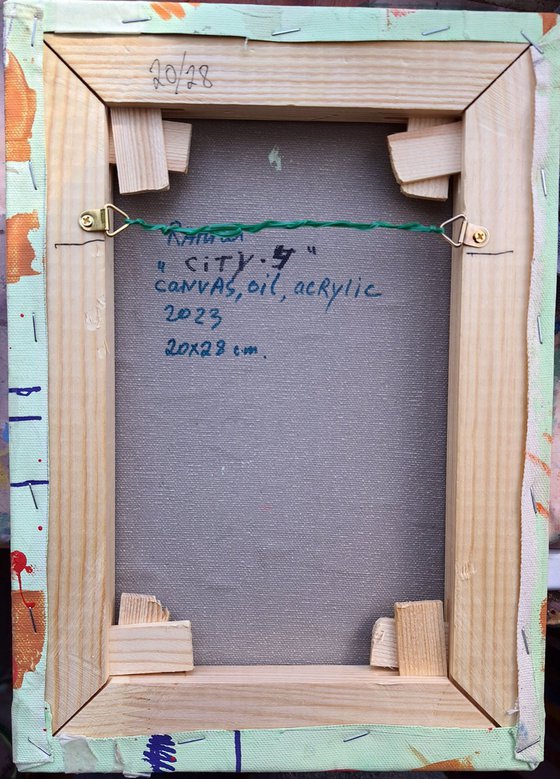 20/28
" CiTY.4 "
CANVAS, oil, acRylic
2023
20x28 cm.